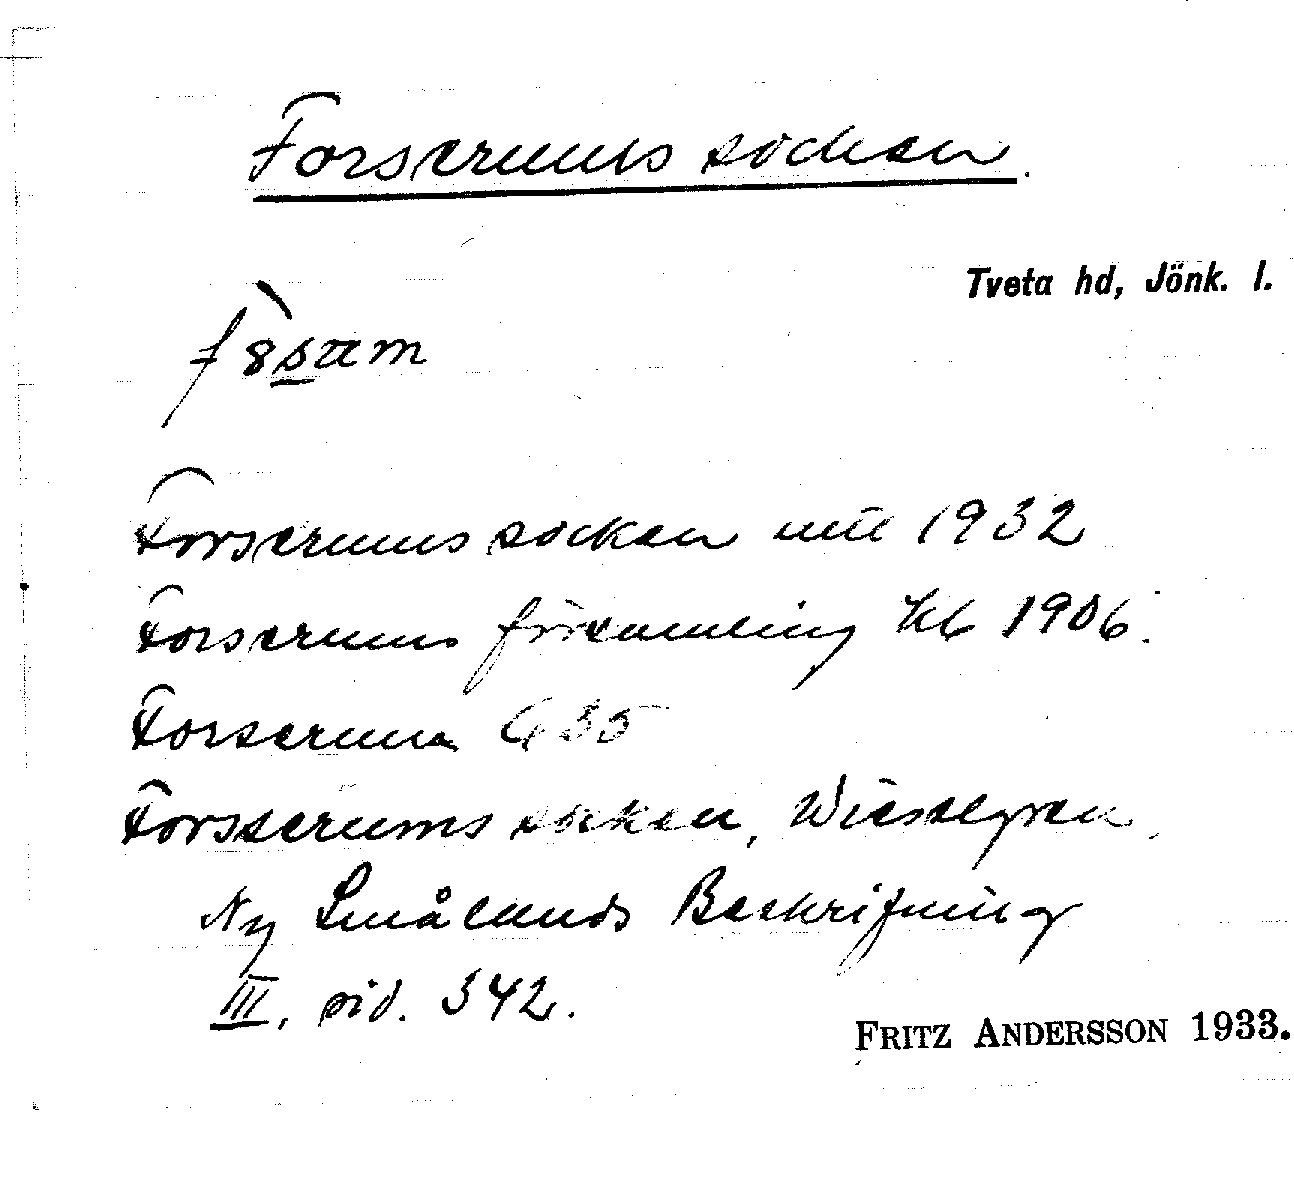 Forserums socken.
Tveta hd, Jönk. l.
Forserums socken mtl 1932
Forserums församling kb 1906.
Forserum G 35
Forsserums socken, Wieselgren
Ny Smålands Beskrifning
III, sid. 342.
FRITZ ANDERSSON 1933.